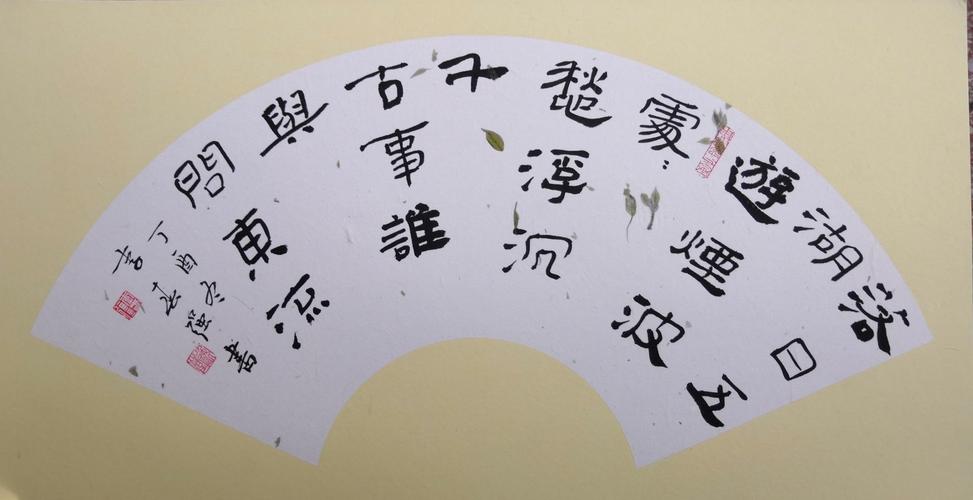 落日五
湖
遊煙波
處〻
愁浮沉
千
古事誰
與
問東流
丁酉冬
強書